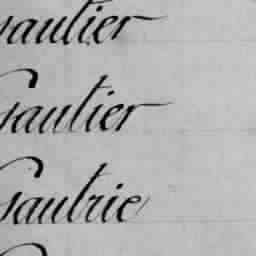 Gautier
Gautier
Gautrie